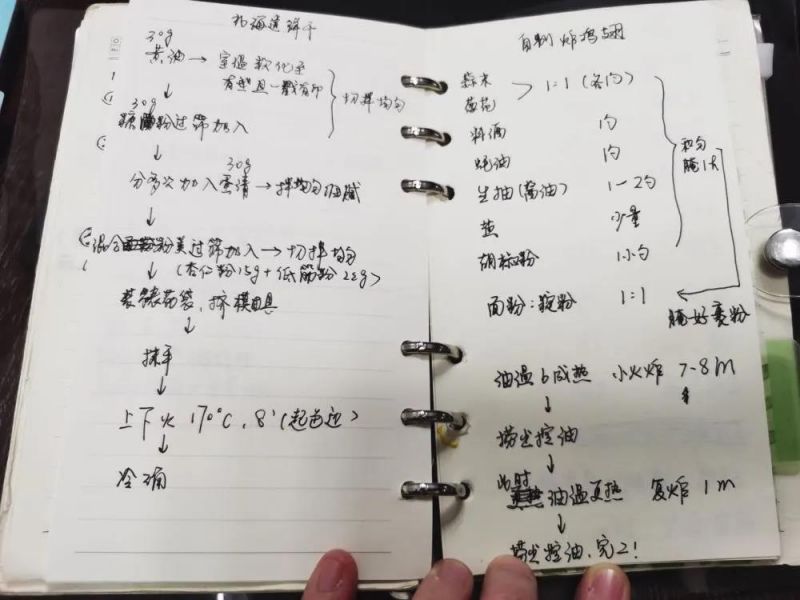 北海道饼干
30g
黄油→室温软化至
有型且一戳有印
切拌均匀
30g
糖粉过筛加入
↓
30g
分多次加入蛋清→拌均匀细腻
↓
混合粉类过筛加入→切拌均匀
↓(杏仁粉15g+低筋粉22g)
装裱花袋,挤模具
↓
抹平
↓
上下火170°C,8'(起色边)
↓
冷确
自制炸鸡翅
1:1(各1勺)
料酒 1勺
蚝油 1勺
生抽(酱油) 1-2勺
盐 少量
胡椒粉 1小勺
和匀
腌1h
面粉:淀粉 1:1
腌好裹粉
油温6成热 小火炸 7-8m
↓
捞出控油
↓
此时油温更热 复炸1m
↓
捞出控油,完工!